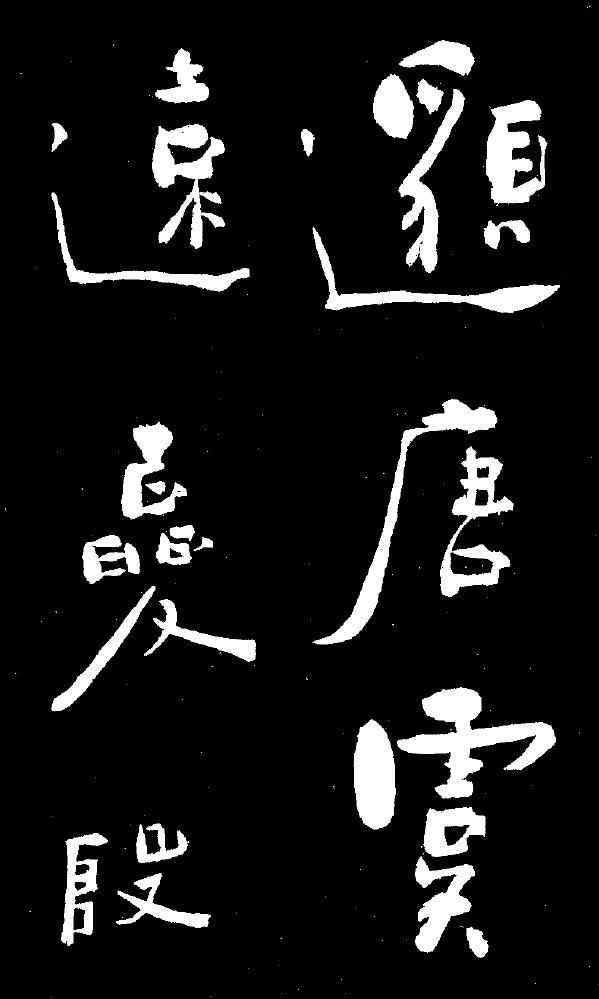 邈唐虞
遠夏殷